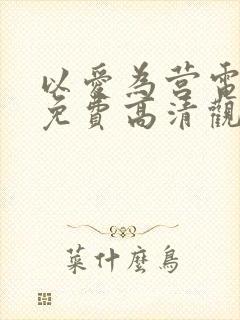 以愛為营電
免費高清觀
萊什麼鳥